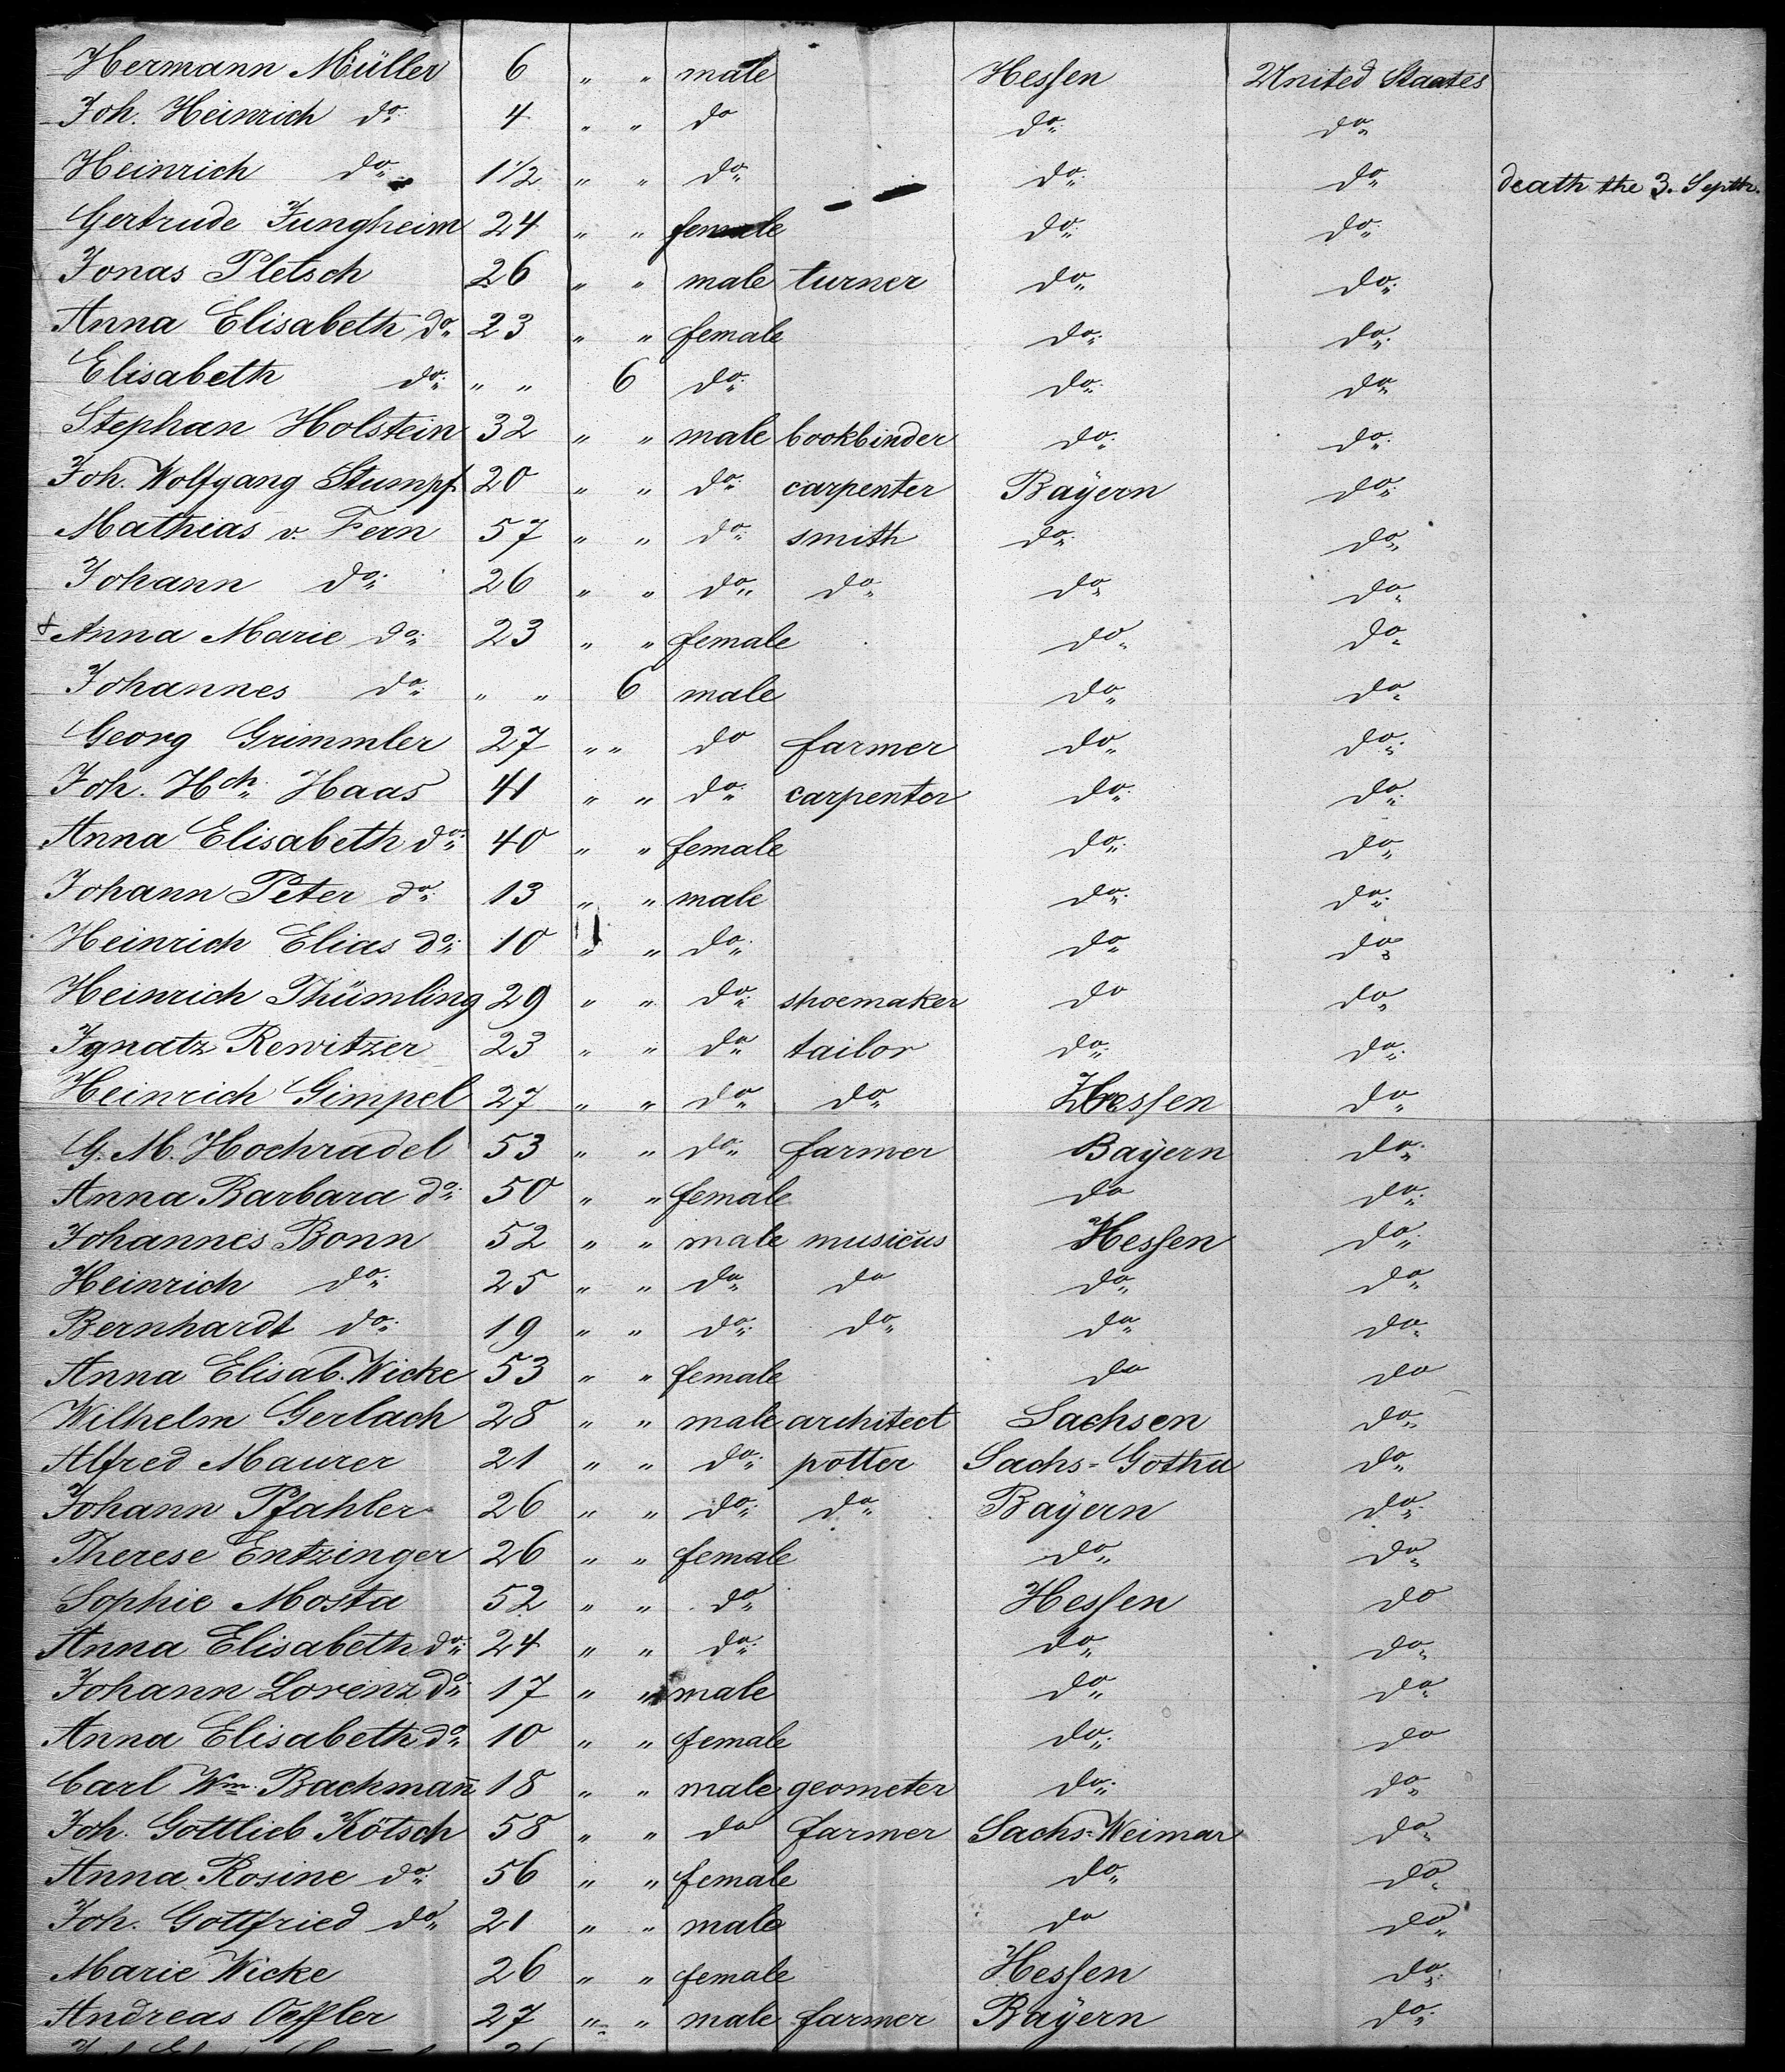 Hermann Müller 6 " " male Hessen United Staates
Joh. Heinrich do 4 " " do do do
Heinrich do 1 1/2 " " do do do death the 3. Septbr.
Gertrude Jungheim 24 " " female do do
Jonas Pletsch 26 " " male turner do do
Anna Elisabeth do 23 " " female do do
Elisabeth do " " 6 do do do
Stephan Holstein 32 " " male bookbinder do do
Joh. Wolfgang Stumpf 20 " " do carpenter Bayern do
Mathias v. Fern 57 " " do smith do do
Johann do 26 " " do do do do
Anna Marie do 23 " " female do do
Johannes do " " 6 male do do
Georg Grimmler 27 " " do farmer do do
Joh. Hch. Haas 41 " " do carpenter do do
Anna Elisabeth do 40 " " female do do
Johann Peter do 13 " " male do do
Heinrich Elias do 10 " " do do do
Heinrich Thümling 29 " " do shoemaker do do
Ignatz Rewitzer 23 " " do tailor do do
Heinrich Gimpel 27 " " do do Hessen do
G. M. Hochradel 53 " " do farmer Bayern do
Anna Barbara do 50 " " female do do
Johannes Bonn 52 " " male musicus Hessen do
Heinrich do 25 " " do do do do
Bernhardt do 19 " " do do do do
Anna Elisab. Wicke 53 " " female do do
Wilhelm Gerlach 28 " " male architect Sachsen do
Alfred Maurer 21 " " do potter Sachs-Gotha do
Johann Pfahler 26 " " do do Bayern do
Therese Entzinger 26 " " female do do
Sophie Mosta 52 " " do Hessen do
Anna Elisabeth do 24 " " do do do
Johann Lorenz do 17 " " male do do
Anna Elisabeth do 10 " " female do do
Carl Wm. Bachmañ 18 " " male geometer do do
Joh. Gottlieb Kötsch 58 " " do farmer Sachs-Weimar do
Anna Rosine do 56 " " female do do
Joh. Gottfried do 21 " " male do do
Marie Wicke 26 " " female Hessen do
Andreas Oeffler 27 " " male farmer Bayern do